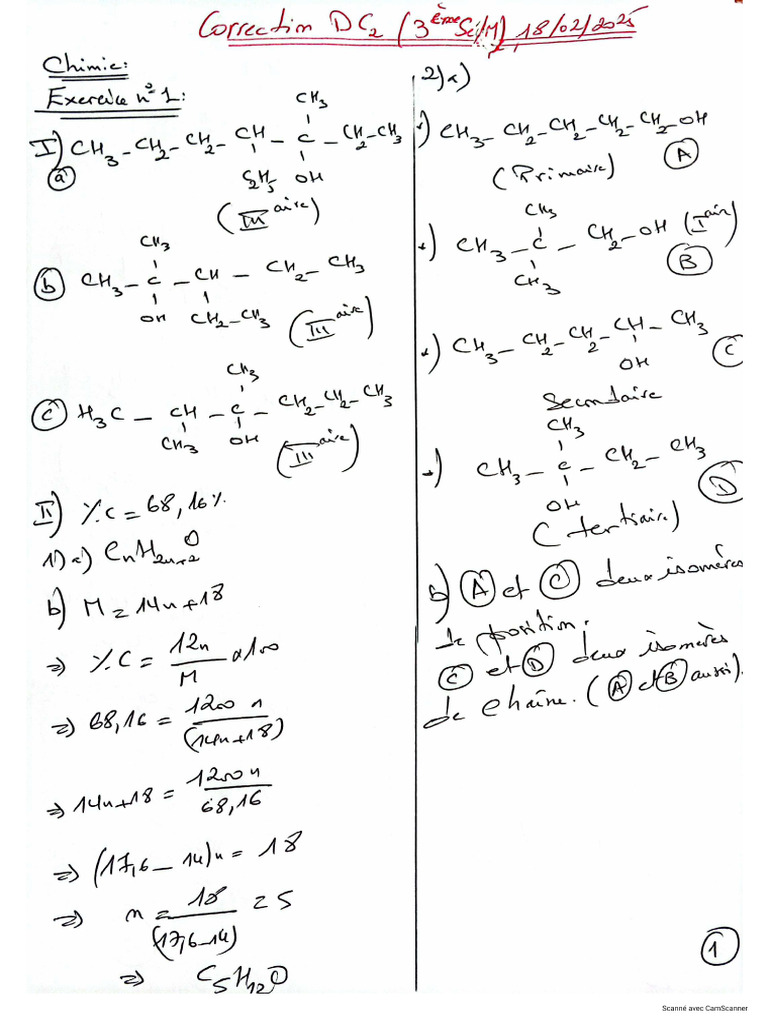 Correction DC2 (3ème Sc/M) 18/02/2025
Chimie:
Exercice n°1:
CH3
I) CH3-CH2-CH2-CH-C-CH2-CH3
a
C2H5 OH
(III aire)
CH3
b CH3-C-CH-CH2-CH3
OH CH2-CH3 (III aire)
CH3
c H3C-CH-C-CH2-CH2-CH3
CH3 OH (III aire)
II) %C=68,16%
1) a) CnH2n+2O
b) M=14n+18
=> %C = 12n/M x100
=> 68,16 = 1200 n/(14n+18)
=> 14n+18 = 1200n/68,16
=> (17,6-14)n = 18
=> n = 18/(17,6-14) = 5
=> C5H12O
2) a)
*) CH3-CH2-CH2-CH2-CH2-OH
(Primaire) A
CH3
*) CH3-C-CH2-OH (I aire)
CH3 B
*) CH3-CH2-CH2-CH-CH3
OH C
Secondaire
CH3
*) CH3-C-CH2-CH3
OH D
(tertiaire)
b) A et C deux isomères
de position.
C et D deux isomères
de chaîne. (A et B aussi).
1
Scanné avec CamScanner